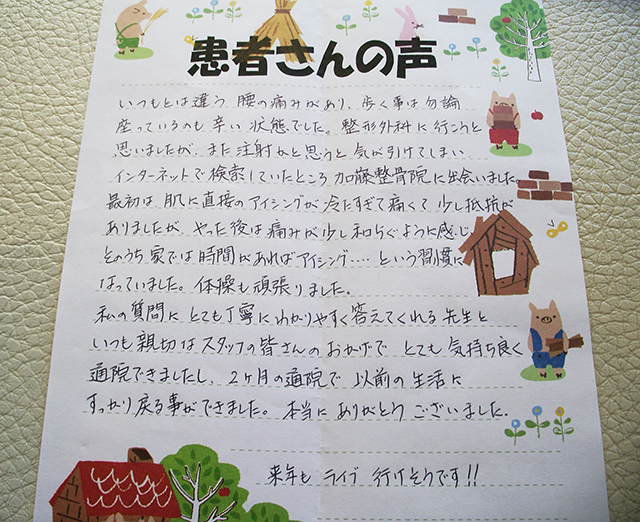 患者さんの声
いつもとは違う 腰の痛みがあり、歩く事は勿論
座っているのも 辛い 状態でした。整形外科に 行こうと
思いましたが、また 注射かと思うと 気が引けてしまい
インターネットで 検索していたところ 加藤整骨院に出会いました。
最初は、肌に直接のアイシングが 冷たすぎて痛くて 少し抵抗が
ありましたが、やった後は 痛みが少し和らぐように感じ、
そのうち 家では 時間があればアイシング‥‥ という習慣に
なっていました。体操も 頑張りました。
私の質問に とても丁寧に わかりやすく 答えてくれる 先生と
いつも 親切な スタッフの皆さんの おかげで とても 気持ち良く
通院できましたし、2ヶ月の通院で 以前の生活に
すっかり 戻る事ができました。 本当に ありがとう ございました.
来年も ライブ 行けそうです!!